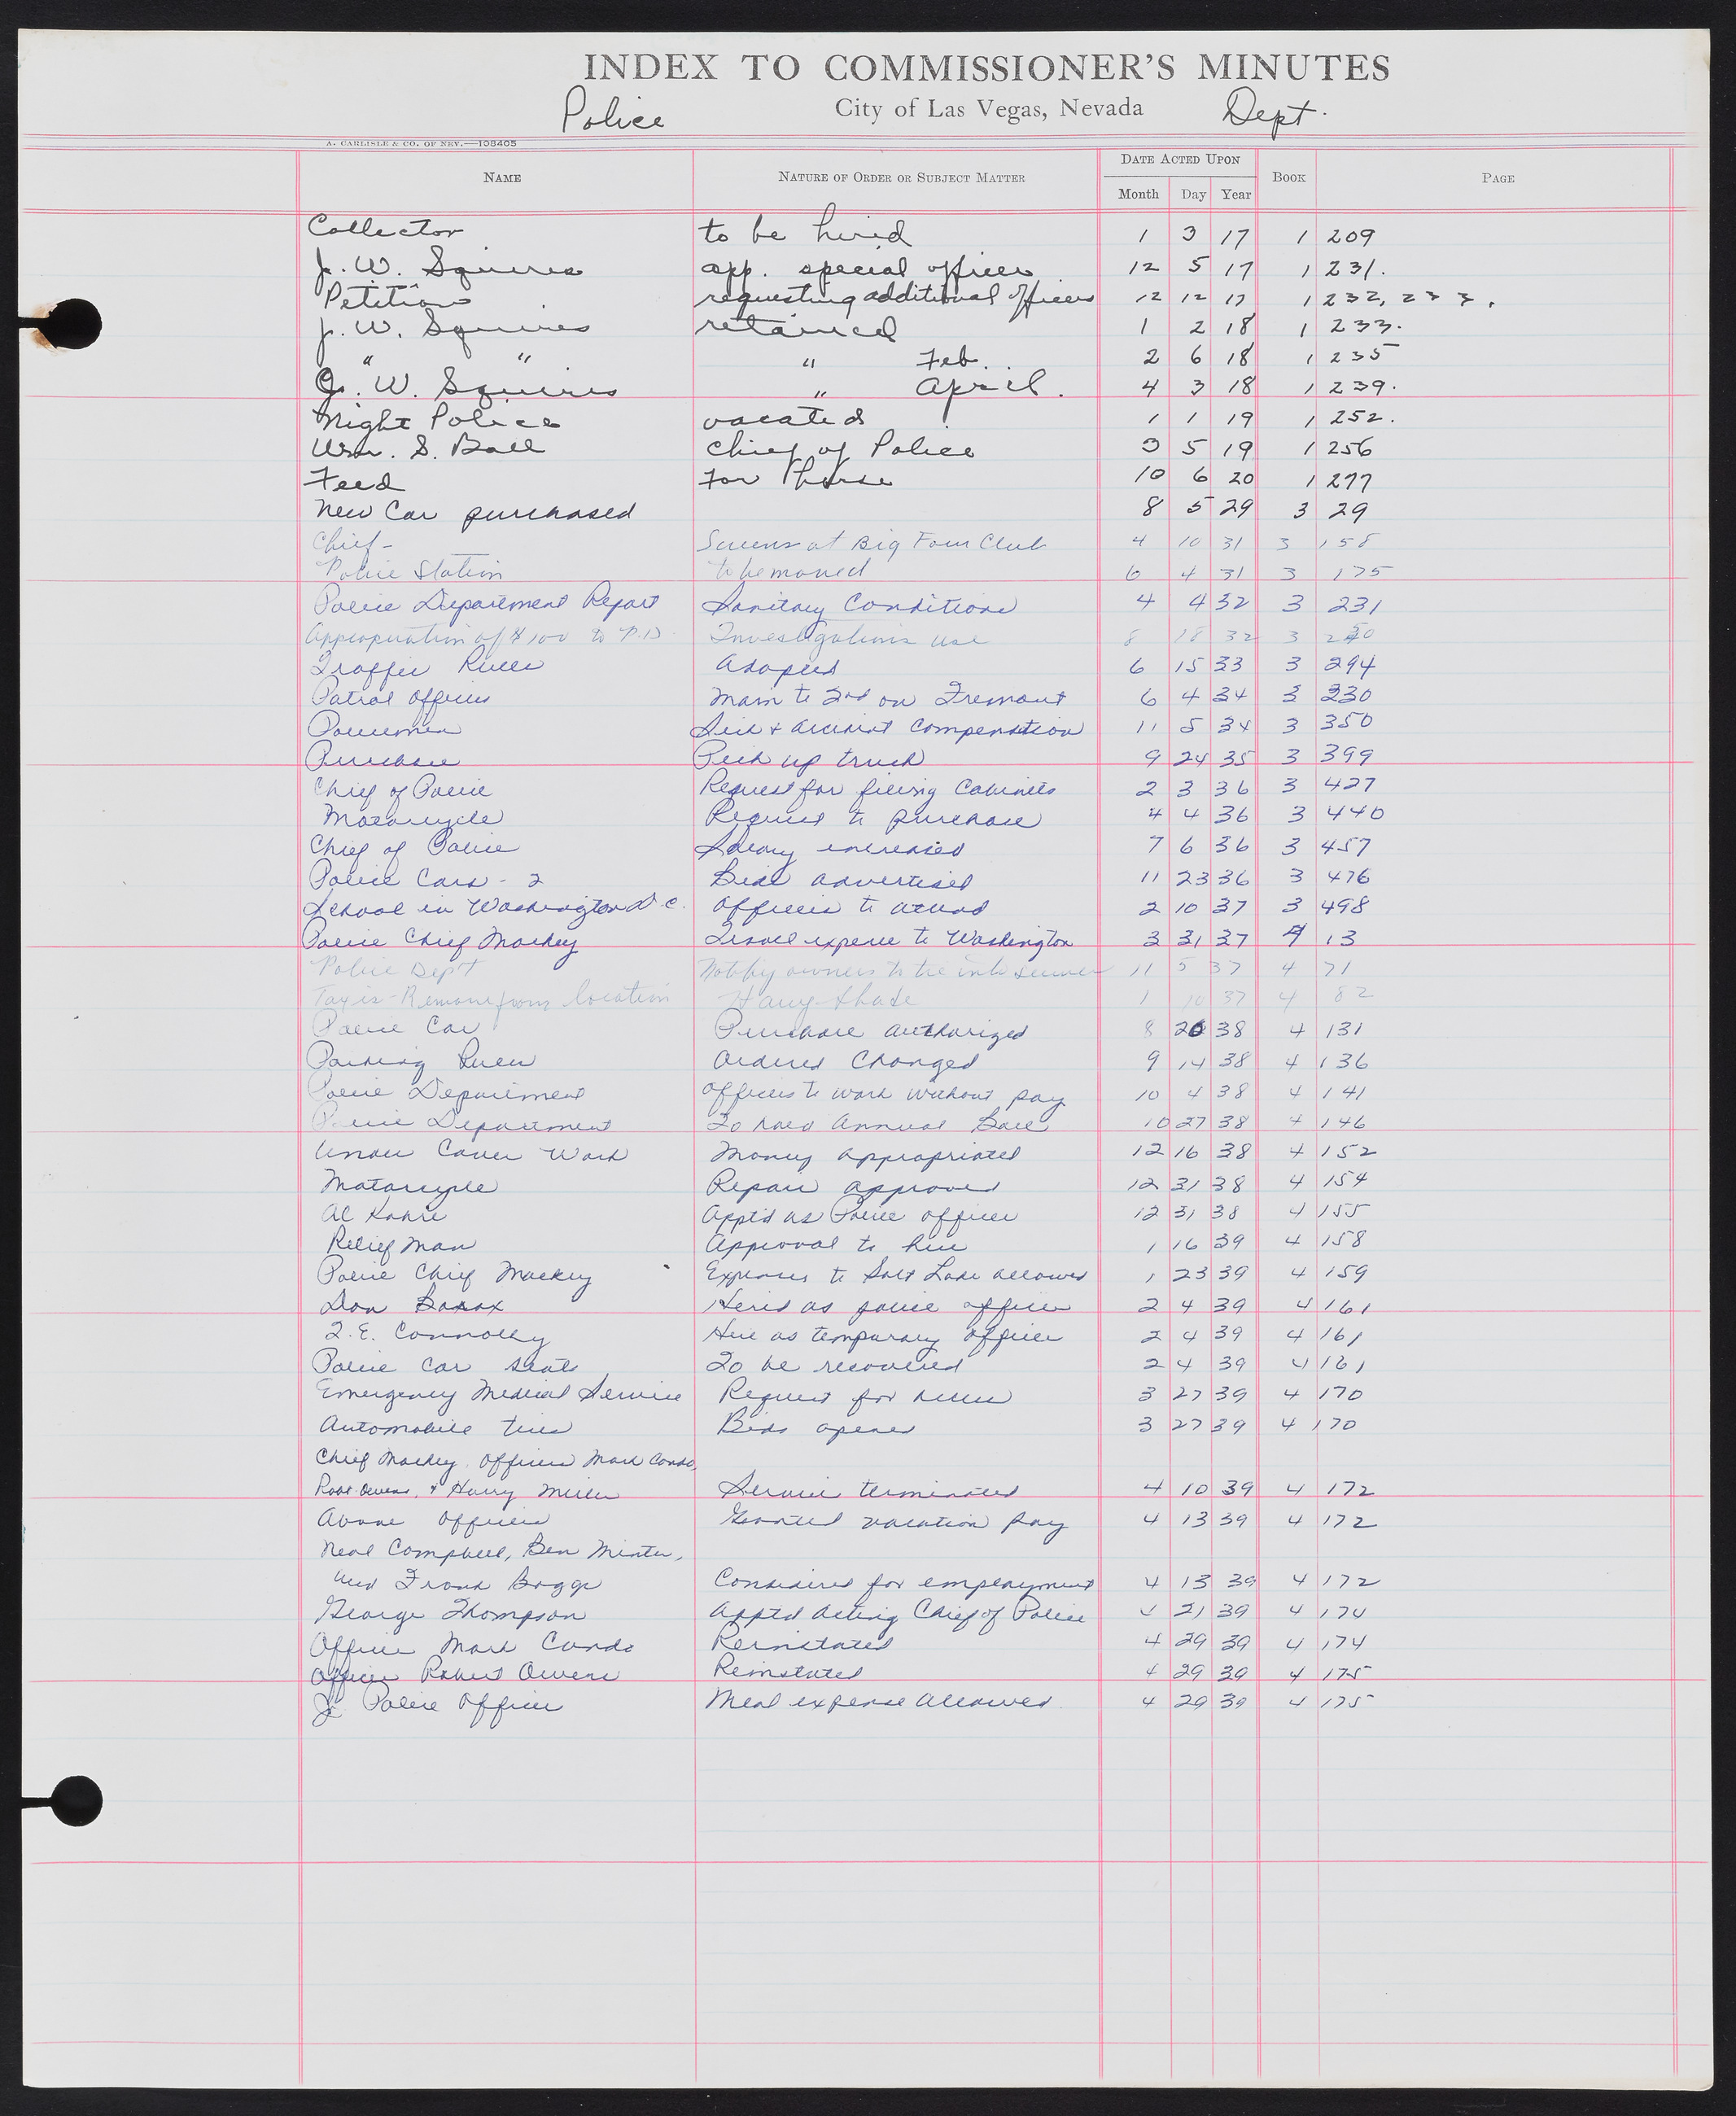 INDEX TO COMMISSIONER'S MINUTES
Police City of Las Vegas, Nevada Dept.
A. CARLISLE & CO. OF NEV.—108405
NAME NATURE OF ORDER OR SUBJECT MATTER DATE ACTED UPON BOOK PAGE
Month Day Year
Collector to be hired 1 3 17 1 209
J. W. Squires app. special officer 12 5 17 1 231.
Petition requesting additional officers 12 12 17 1 232, 233.
J. W. Squires retained 1 2 18 1 233.
" " " Feb. 2 6 18 1 235
J. W. Squires " April. 4 3 18 1 239.
Night Police vacated 1 1 19 1 252.
Wm. S. Ball Chief of Police 3 5 19 1 256
Feed For Horse 10 6 20 1 277
New Car purchased 8 5 29 3 29
Chief - Screens at Big Four Club 4 10 31 3 158
Police Station to be moved 6 4 31 3 175
Police Department Report Sanitary Conditions 4 4 32 3 231
Appropriation of $100 to P.D. Investigations use 8 18 32 3
Traffic Rules Adopted 6 15 33 3 294
Patrol Officers Main to 2nd on Fremont 6 4 34 3 330
Policemen Sick & accident Compensation 11 5 34 3 350
Purchase Pick up truck 9 24 35 3 399
Chief of Police Request for filing Cabinets 2 3 36 3 427
Motorcycle Request to purchase 4 4 36 3 440
Chief of Police Salary increased 7 6 36 3 457
Police Cars - 2 Bids advertised 11 23 36 3 476
School in Washington D.C. Officers to attend 2 10 37 3 498
Police Chief Mackey Travel expense to Washington 3 31 37 4 13
Police Dept Notify owners to tie into sewer 11 5 37 4 71
Taxis - Remove from location Harry Shade 1 10 37 4 82
Police Car Purchase authorized 8 26 38 4 131
Parking Rules Ordered Changed 9 14 38 4 136
Police Department Officers to work without pay 10 4 38 4 141
Police Department To hold Annual Ball 10 27 38 4 146
Under Cover Work Money appropriated 12 16 38 4 152
Motorcycle Repair approved 12 31 38 4 154
Al Kahre Apptd as Police officer 12 31 38 4 155
Relief Man Approval to hire 1 16 39 4 158
Police Chief Mackey Expenses to Salt Lake allowed 1 23 39 4 159
Don Borax Hired as police officer 2 4 39 4 161
T. E. Connolly Hire as temporary officer 2 4 39 4 161
Police Car Seats To be recovered 2 4 39 4 161
Emergency Medical Service Request for 3 27 39 4 170
Automobile tires Bids opened 3 27 39 4 170
Chief Mackey, Officers Mark Condo,
Robt. Owens, & Harry Miller Service terminated 4 10 39 4 172
Above Officers Granted vacation pay 4 13 39 4 172
Neal Campbell, Ben Minter,
and Frank Boggs Considered for employment 4 13 39 4 172
George Thompson Apptd Acting Chief of Police 4 21 39 4 174
Officer Mark Condo Reinstated 4 29 39 4 174
Officer Robert Owens Reinstated 4 29 39 4 175
Jr Police Officer Meal expense Allowed 4 29 39 4 175